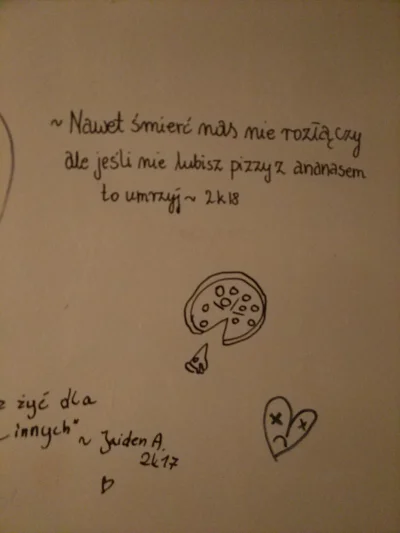 ~ Nawet śmierć nas nie rozłączy
ale jeśli nie lubisz pizzy z ananasem
to umrzyj ~ 2k18
z żyć dla
„innych" ~ Jaiden A.
2k17